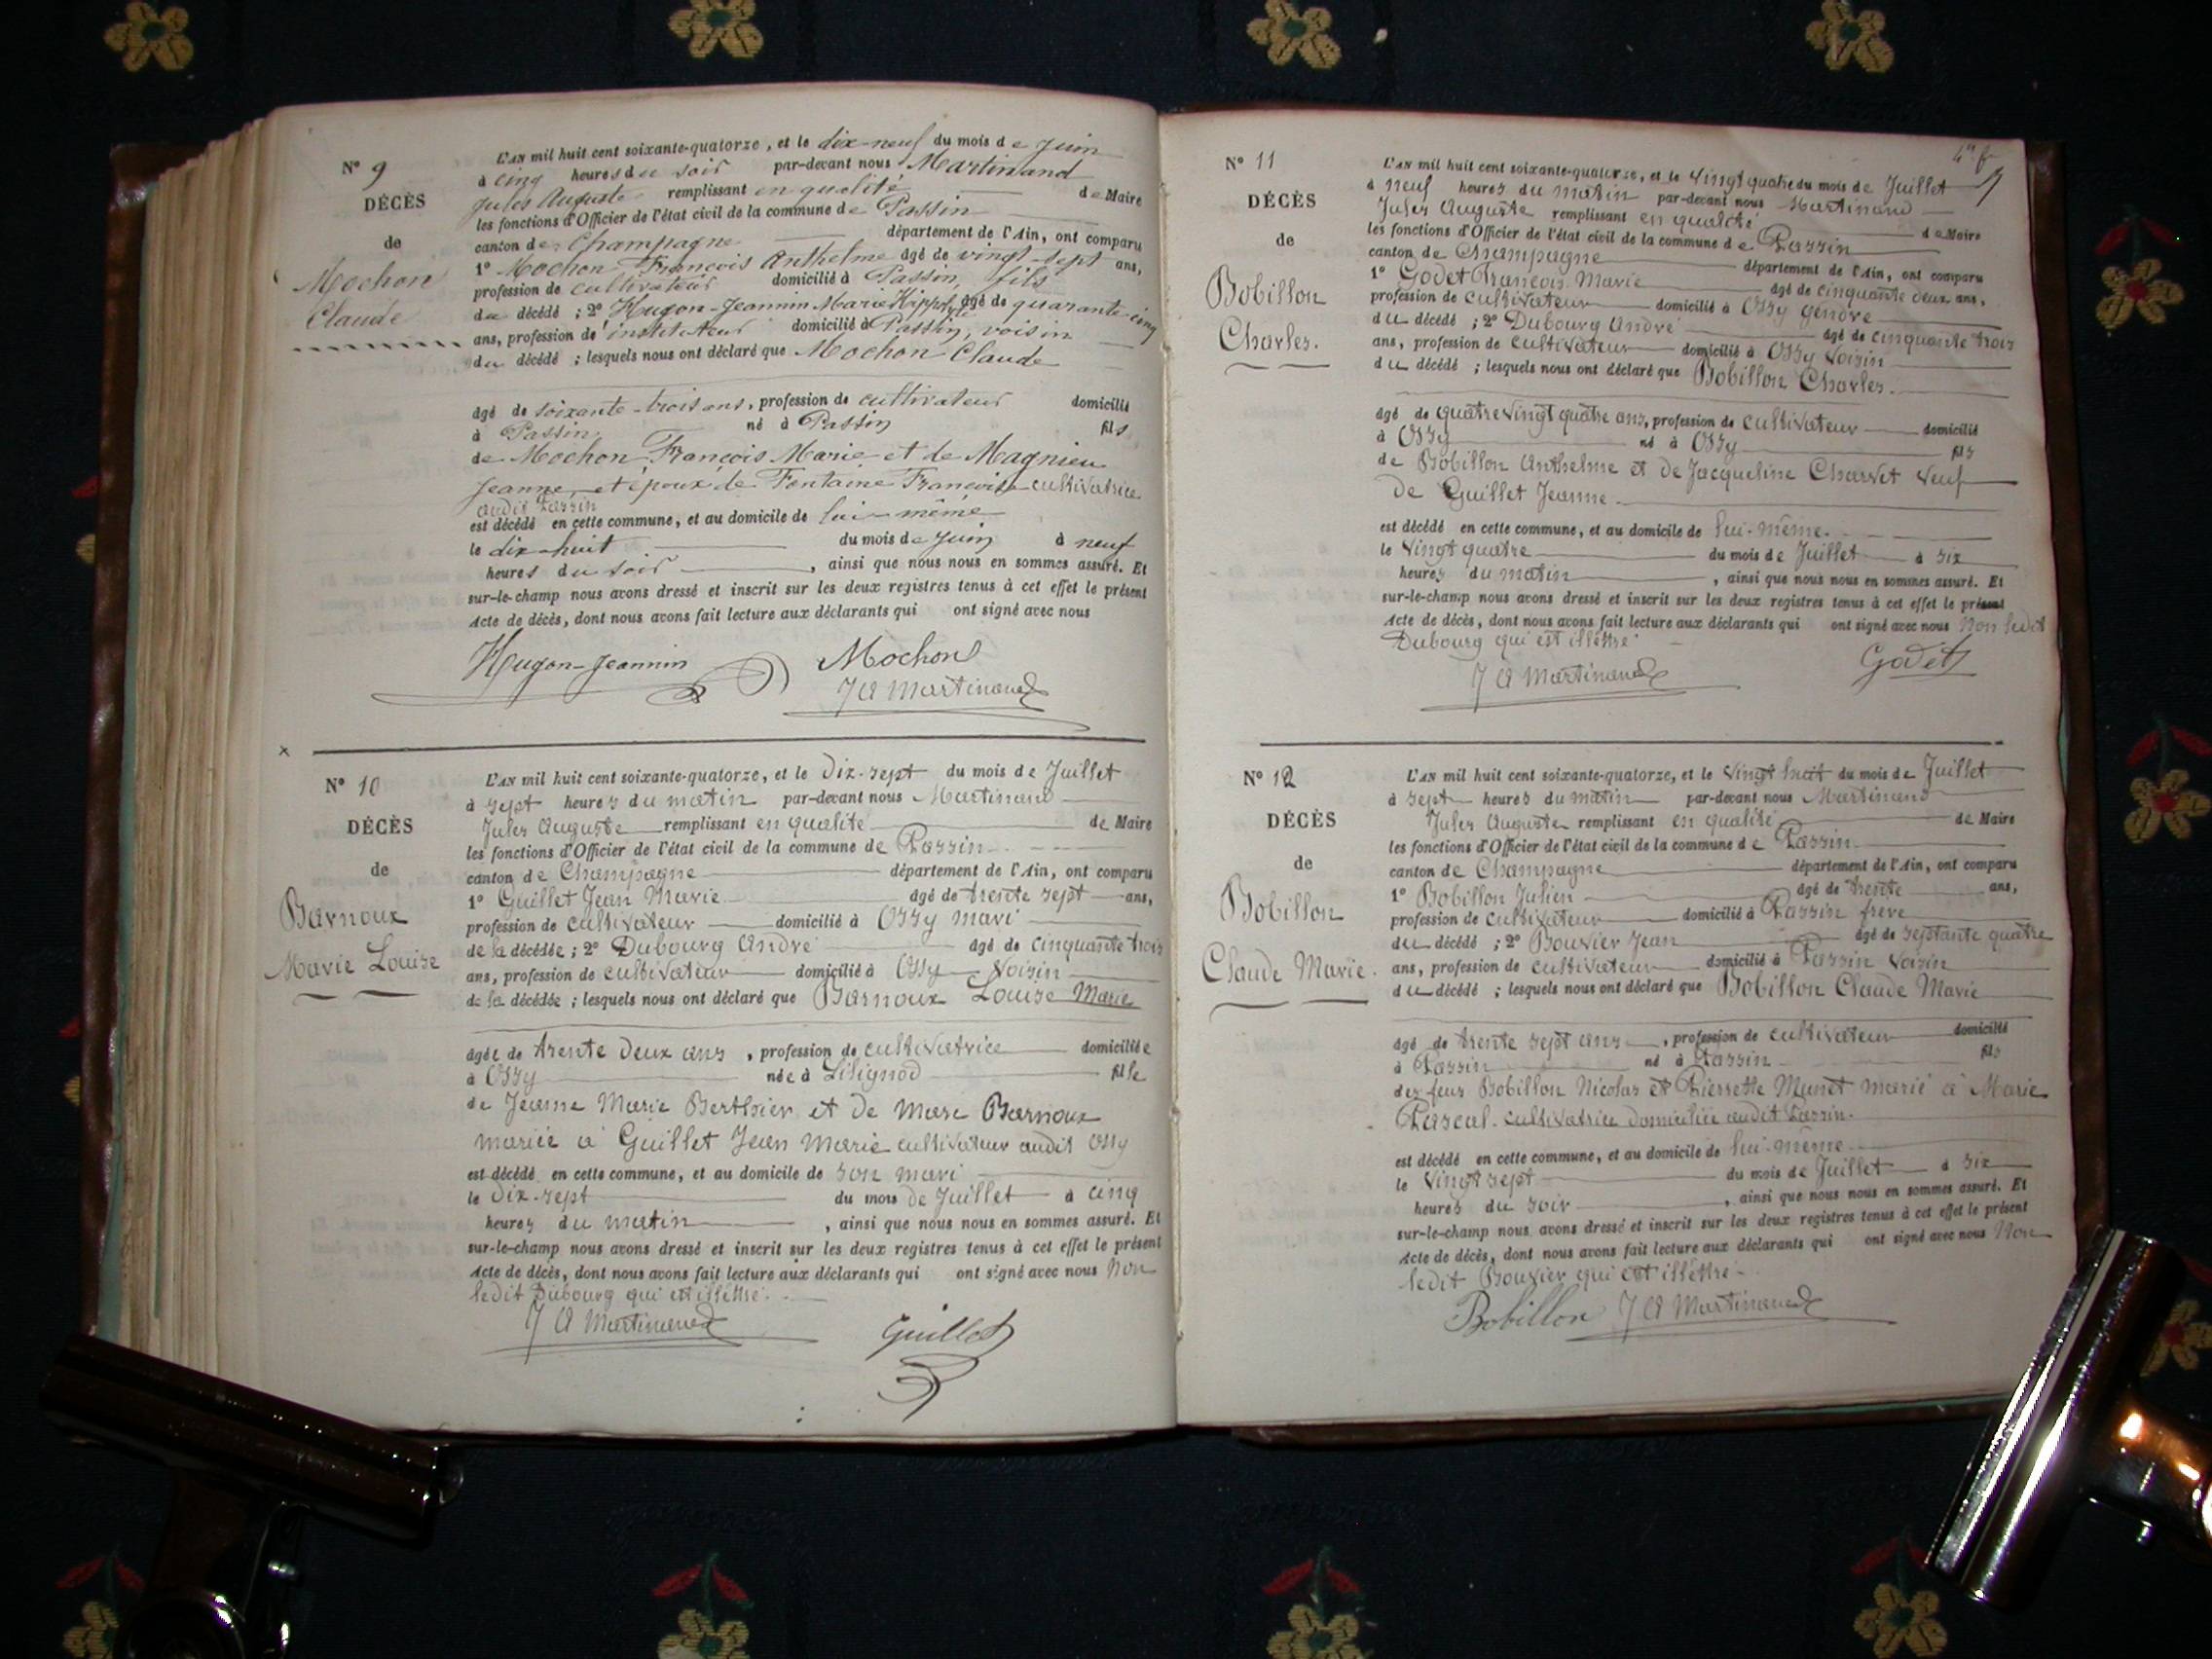 N° 9
DÉCÈS
de
Mochon
Claude
L'AN mil huit cent soixante-quatorze, et le dix-neuf du mois de Juin
à cinq heures du soir par-devant nous Martinand
Jules Auguste remplissant en qualité de Maire
les fonctions d'Officier de l'état civil de la commune de Passin
canton de Champagne département de l'Ain, ont comparu
1° Mochon François Anthelme âgé de vingt-sept ans,
profession de cultivateur domicilié à Passin, fils
du décédé ; 2° Hugon-Jeannin Marie Hippolyte âgé de quarante-cinq
ans, profession d'instituteur domicilié à Passin, voisin
du décédé ; lesquels nous ont déclaré que Mochon Claude
âgé de soixante-trois ans, profession de cultivateur domicilié
à Passin né à Passin fils
de Mochon François Marie et de Magnieu
Jeanne, et époux de Fontaine Françoise cultivatrice
audit Passin
est décédé en cette commune, et au domicile de lui-même
le dix-huit du mois de Juin à neuf
heures du soir, ainsi que nous nous en sommes assuré. Et
sur-le-champ nous avons dressé et inscrit sur les deux registres tenus à cet effet le présent
Acte de décès, dont nous avons fait lecture aux déclarants qui ont signé avec nous
Hugon-Jeannin Mochon
J A Martinand
N° 10
DÉCÈS
de
Barnoux
Marie Louise
L'AN mil huit cent soixante-quatorze, et le Dix-sept du mois de Juillet
à sept heures du matin par-devant nous Martinand
Jules Auguste remplissant en qualité de Maire
les fonctions d'Officier de l'état civil de la commune de Passin
canton de Champagne département de l'Ain, ont comparu
1° Guillet Jean Marie âgé de trente sept ans,
profession de cultivateur domicilié à Ossy mari
de la décédée ; 2° Dubourg André âgé de cinquante trois
ans, profession de cultivateur domicilié à Ossy Voisin
de la décédée ; lesquels nous ont déclaré que Barnoux Louise Marie
âgée de trente deux ans, profession de cultivatrice domiciliée
à Ossy née à Lilignod fille
de Jeanne Marie Berthier et de Marc Barnoux
mariée à Guillet Jean Marie cultivateur audit Ossy
est décédé en cette commune, et au domicile de son mari
le Dix-sept du mois de Juillet à cinq
heures du matin, ainsi que nous nous en sommes assuré. Et
sur-le-champ nous avons dressé et inscrit sur les deux registres tenus à cet effet le présent
Acte de décès, dont nous avons fait lecture aux déclarants qui ont signé avec nous Non
ledit Dubourg qui est illétré
J A Martinand Guillet
N° 11
DÉCÈS
de
Bobillon
Charles.
L'AN mil huit cent soixante-quatorze, et le Vingt quatre du mois de Juillet
à neuf heures du matin par-devant nous Martinand
Jules Auguste remplissant en qualité de Maire
les fonctions d'Officier de l'état civil de la commune de Passin
canton de Champagne département de l'Ain, ont comparu
1° Godet François Marie âgé de cinquante deux ans,
profession de cultivateur domicilié à Ossy gendre
du décédé ; 2° Dubourg André âgé de cinquante trois
ans, profession de cultivateur domicilié à Ossy Voisin
du décédé ; lesquels nous ont déclaré que Bobillon Charles.
âgé de quatre vingt quatre ans, profession de cultivateur domicilié
à Ossy né à Ossy fils
de Bobillon Anthelme et de Jacqueline Charvet Veuf
de Guillet Jeanne.
est décédé en cette commune, et au domicile de lui-même.
le Vingt quatre du mois de Juillet à six
heures du matin, ainsi que nous nous en sommes assuré. Et
sur-le-champ nous avons dressé et inscrit sur les deux registres tenus à cet effet le présent
Acte de décès, dont nous avons fait lecture aux déclarants qui ont signé avec nous Non ledit
Dubourg qui est illétré
J A Martinand Godet
N° 12
DÉCÈS
de
Bobillon
Claude Marie.
L'AN mil huit cent soixante-quatorze, et le Vingt huit du mois de Juillet
à sept heures du matin par-devant nous Martinand
Jules Auguste remplissant en qualité de Maire
les fonctions d'Officier de l'état civil de la commune de Passin
canton de Champagne département de l'Ain, ont comparu
1° Bobillon Julien âgé de trente ans,
profession de cultivateur domicilié à Passin frère
du décédé ; 2° Bouvier Jean âgé de septante quatre
ans, profession de cultivateur domicilié à Passin Voisin
du décédé ; lesquels nous ont déclaré que Bobillon Claude Marie
âgé de trente sept ans, profession de cultivateur domicilié
à Passin né à Passin fils
des feus Bobillon Nicolas et Pierrette Munet marié à Marie
Pascal. cultivatrice domiciliée audit Passin.
est décédé en cette commune, et au domicile de lui-même
le Vingt sept du mois de Juillet à six
heures du soir, ainsi que nous nous en sommes assuré. Et
sur-le-champ nous avons dressé et inscrit sur les deux registres tenus à cet effet le présent
Acte de décès, dont nous avons fait lecture aux déclarants qui ont signé avec nous Non
ledit Bouvier qui est illétré
Bobillon J A Martinand